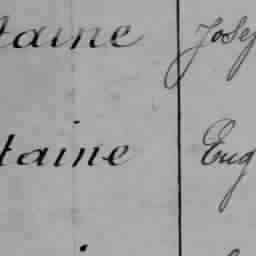 taine Josep
taine Eug